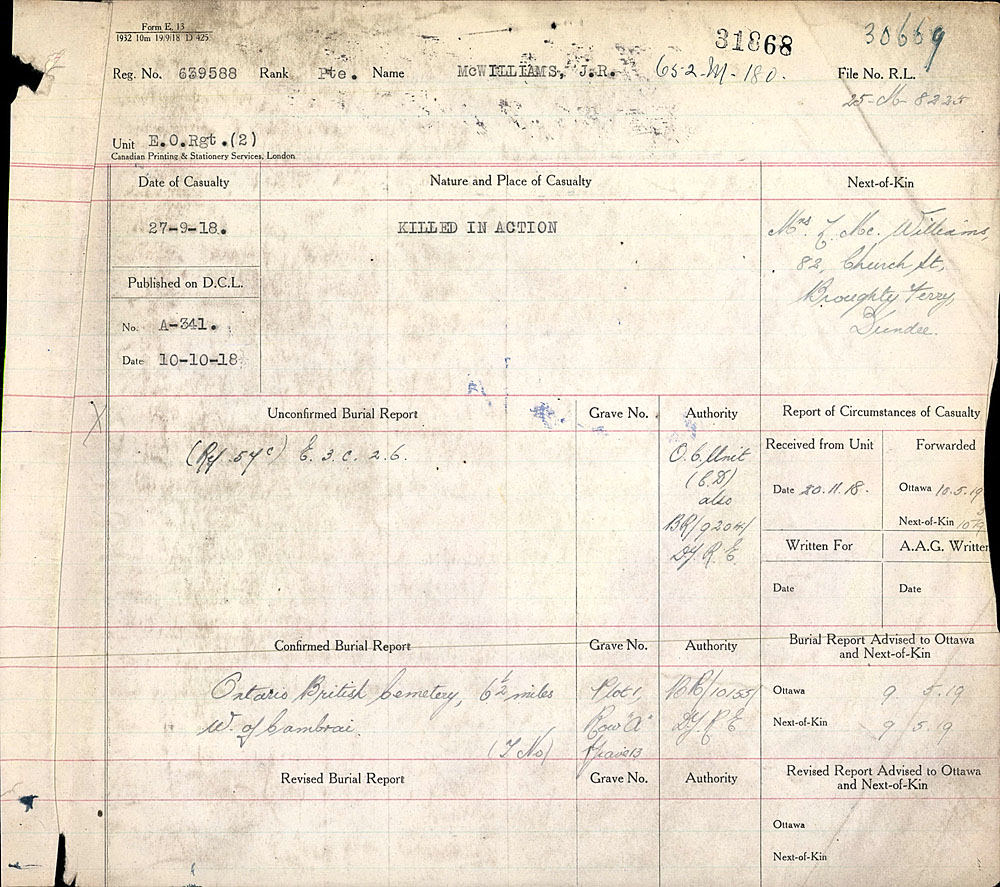 Form E. 13
1932 10m 19/9/18 D 425
31868
30669
Reg. No. 639588 Rank Pte. Name McWILLIAMS, J.R. 652-M-180. File No. R.L.
25-M-8225
Unit E.O.Rgt.(2)
Canadian Printing & Stationery Services, London
Date of Casualty Nature and Place of Casualty Next-of-Kin
27-9-18. KILLED IN ACTION
Mrs Mc. Williams,
82, Church St,
Broughty Ferry,
Dundee.
Published on D.C.L.
No. A-341.
Date 10-10-18
Unconfirmed Burial Report Grave No. Authority Report of Circumstances of Casualty
X
(Ref. 57c) E. 3. c. 2. 6.
O. C. Unit
(C.D)
also
BR/9204/
D.G.R.E.
Received from Unit Forwarded
Date 20.11.18. Ottawa 10.5.19
Next-of-Kin
Written For A.A.G. Written
Date Date
Confirmed Burial Report Grave No. Authority Burial Report Advised to Ottawa and Next-of-Kin
Ontario British Cemetery, 6½ miles Plot 1, BR/10155/ Ottawa 9 5.19
W. of Cambrai. Row "A" D.G.R.E Next-of-Kin 9 5.19
Grave 13
Revised Burial Report Grave No. Authority Revised Report Advised to Ottawa and Next-of-Kin
Ottawa
Next-of-Kin